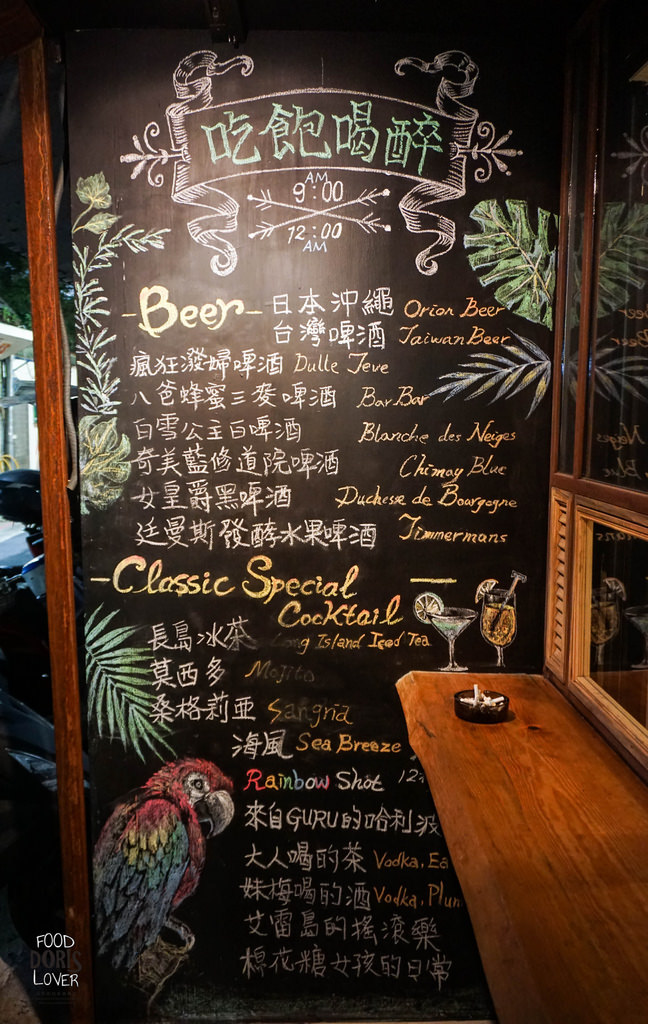 吃飽喝醉
AM
9:00
12:00
AM
Beer 日本沖繩 Orion Beer
台灣啤酒 Taiwan Beer
瘋狂潑婦啤酒 Dulle Teve
八爸蜂蜜三麥啤酒 Bar.Bar
白雪公主白啤酒 Blanche des Neiges
奇美藍修道院啤酒 Chimay Blue
女皇爵黑啤酒 Duchesse de Bourgogne
廷曼斯發酵水果啤酒 Timmermans
Classic Special
Cocktail
長島冰茶 Long Island Iced Tea
莫西多 Mojito
桑格莉亞 Sangria
海風 Sea Breeze
Rainbow Shot 12
來自GURU的哈利波
大人喝的茶 Vodka, Ea
妹梅喝的酒 Vodka, Plum
艾雷島的搖滾樂
棉花糖女孩的日常
FOOD
DORIS
LOVER